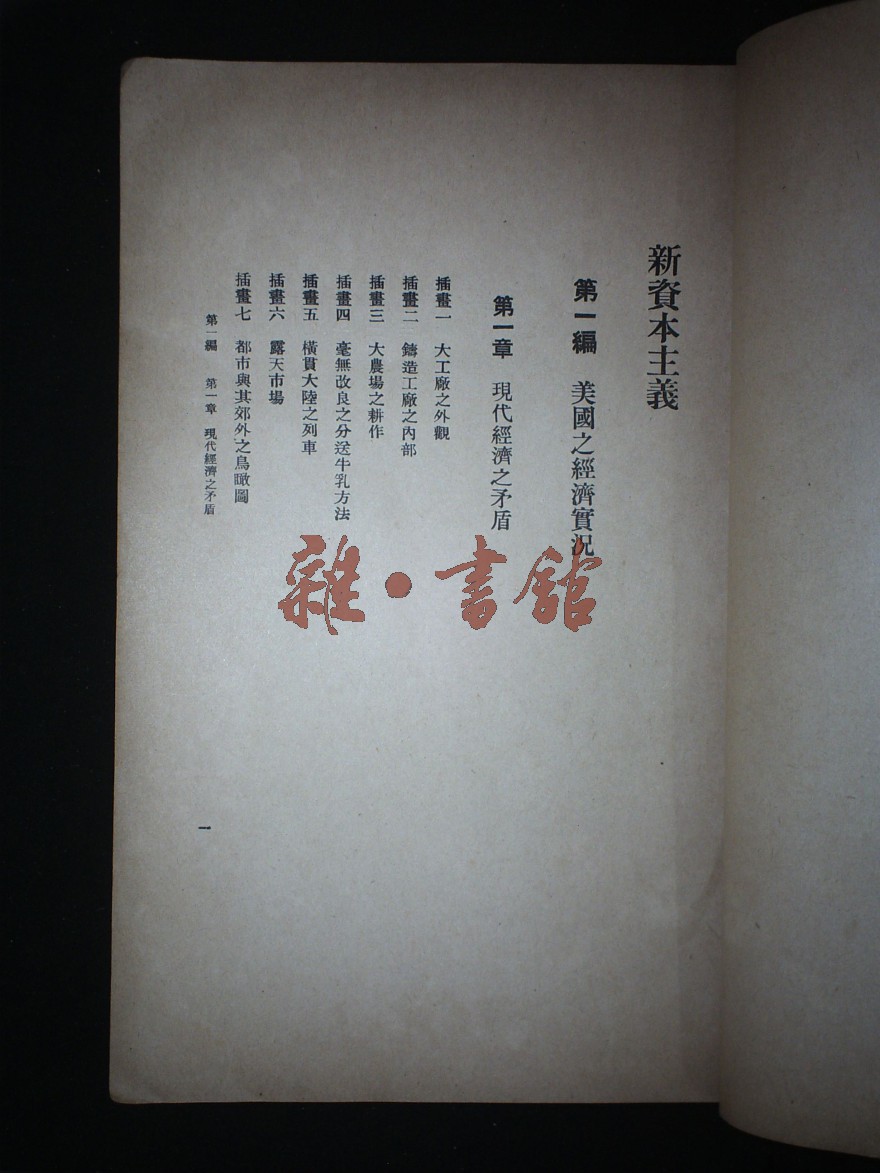 新資本主義
第一編　美國之經濟實況
第一章　現代經濟之矛盾
插畫一　大工廠之外觀
插畫二　鑄造工廠之內部
插畫三　大農場之耕作
插畫四　毫無改良之分送牛乳方法
插畫五　橫貫大陸之列車
插畫六　露天市場
插畫七　都市與其郊外之鳥瞰圖
第一編　第一章　現代經濟之矛盾
一
雜·書館